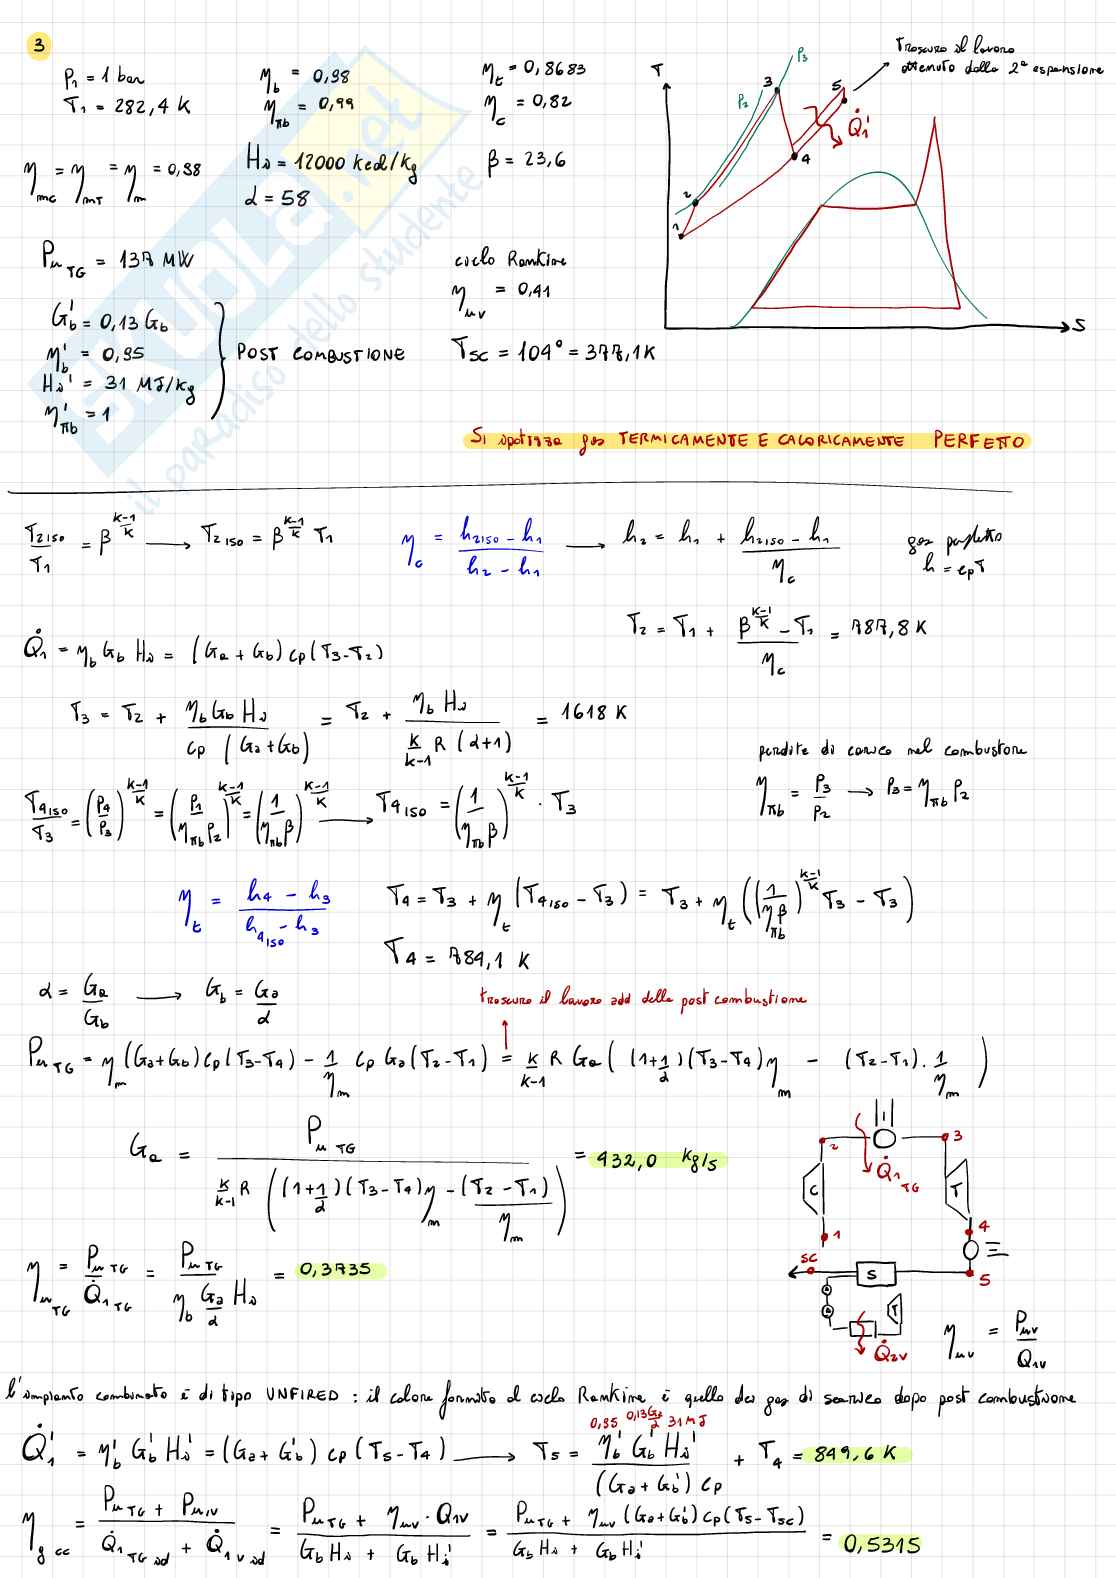 3
p₁ = 1 bar
T₁ = 282,4 K
η_b = 0,98
η_πb = 0,99
η_t = 0,8683
η_c = 0,82
η_mc = η_mT = η_m = 0,98
Hi = 12000 kcal/kg
α = 58
β = 23,6
Trascuro il lavoro
ottenuto dalla 2ª espansione
T
P₃
P₂
3
5
Q̇₁'
4
2
1
S
Pu TG = 137 MW
G_b' = 0,13 G_b
η_b' = 0,95
Hi' = 31 MJ/kg
η'_πb = 1
POST COMBUSTIONE
ciclo Rankine
η_uv = 0,41
Tsc = 104° = 377,1 K
Si ipotizza gas TERMICAMENTE E CALORICAMENTE PERFETTO
T₂iso/T₁ = β^((k-1)/k) → T₂iso = β^((k-1)/k) T₁
η_c = (h₂iso - h₁)/(h₂ - h₁) → h₂ = h₁ + (h₂iso - h₁)/η_c
gas perfetto
h = cpT
T₂ = T₁ + (β^((k-1)/k) - T₁)/η_c = 787,8 K
Q̇₁ = η_b G_b Hi = (Ga + Gb) cp (T₃-T₂)
T₃ = T₂ + η_b G_b Hi/(cp (Ga+Gb)) = T₂ + η_b Hi/(k/(k-1) R (α+1)) = 1618 K
perdite di carico nel combustore
η_πb = P₃/P₂ → P₃ = η_πb P₂
T₄iso/T₃ = (P₄/P₃)^((k-1)/k) = (P₁/(η_πb P₂))^((k-1)/k) = (1/(η_πb β))^((k-1)/k) → T₄iso = (1/(η_πb β))^((k-1)/k) · T₃
η_t = (h₄ - h₃)/(h₄iso - h₃)
T₄ = T₃ + η_t (T₄iso - T₃) = T₃ + η_t ((1/(η_πb β))^((k-1)/k) T₃ - T₃)
T₄ = 784,1 K
α = Ga/Gb → Gb = Ga/α
trascuro il lavoro add della post combustione
Pu TG = η_m (Ga+Gb) cp (T₃-T₄) - 1/η_m cp Ga (T₂-T₁) = k/(k-1) R Ga ( (1+1/α)(T₃-T₄) η_m - (T₂-T₁) · 1/η_m )
Ga = Pu TG/(k/(k-1) R ((1+1/α)(T₃-T₄) η_m - (T₂-T₁)/η_m)) = 432,0 kg/s
η_u TG = Pu TG/Q̇₁ TG = Pu TG/(η_b Ga/α Hi) = 0,3735
2
3
Q̇₁ TG
C
T
1
4
sc
S
5
T
Q̇₂v
η_uv = Puv/Q₁v
l'impianto combinato è di tipo UNFIRED : il calore fornito al ciclo Rankine è quello dei gas di scarico dopo post combustione
0,95 0,13 Ga/α 31 MJ
Q̇₁' = η_b' G_b' Hi' = (Ga + Gb') cp (T₅-T₄) → T₅ = η_b' G_b' Hi'/((Ga + Gb') cp) + T₄ = 849,6 K
η_g cc = (Pu TG + Puv)/(Q̇₁ TG id + Q̇₁v id) = (Pu TG + η_uv · Q₁v)/(Gb Hi + Gb Hi') = (Pu TG + η_uv (Ga+Gb') cp (T₅-Tsc))/(Gb Hi + Gb Hi') = 0,5315
SKUOLA.net
il paradiso dello studente